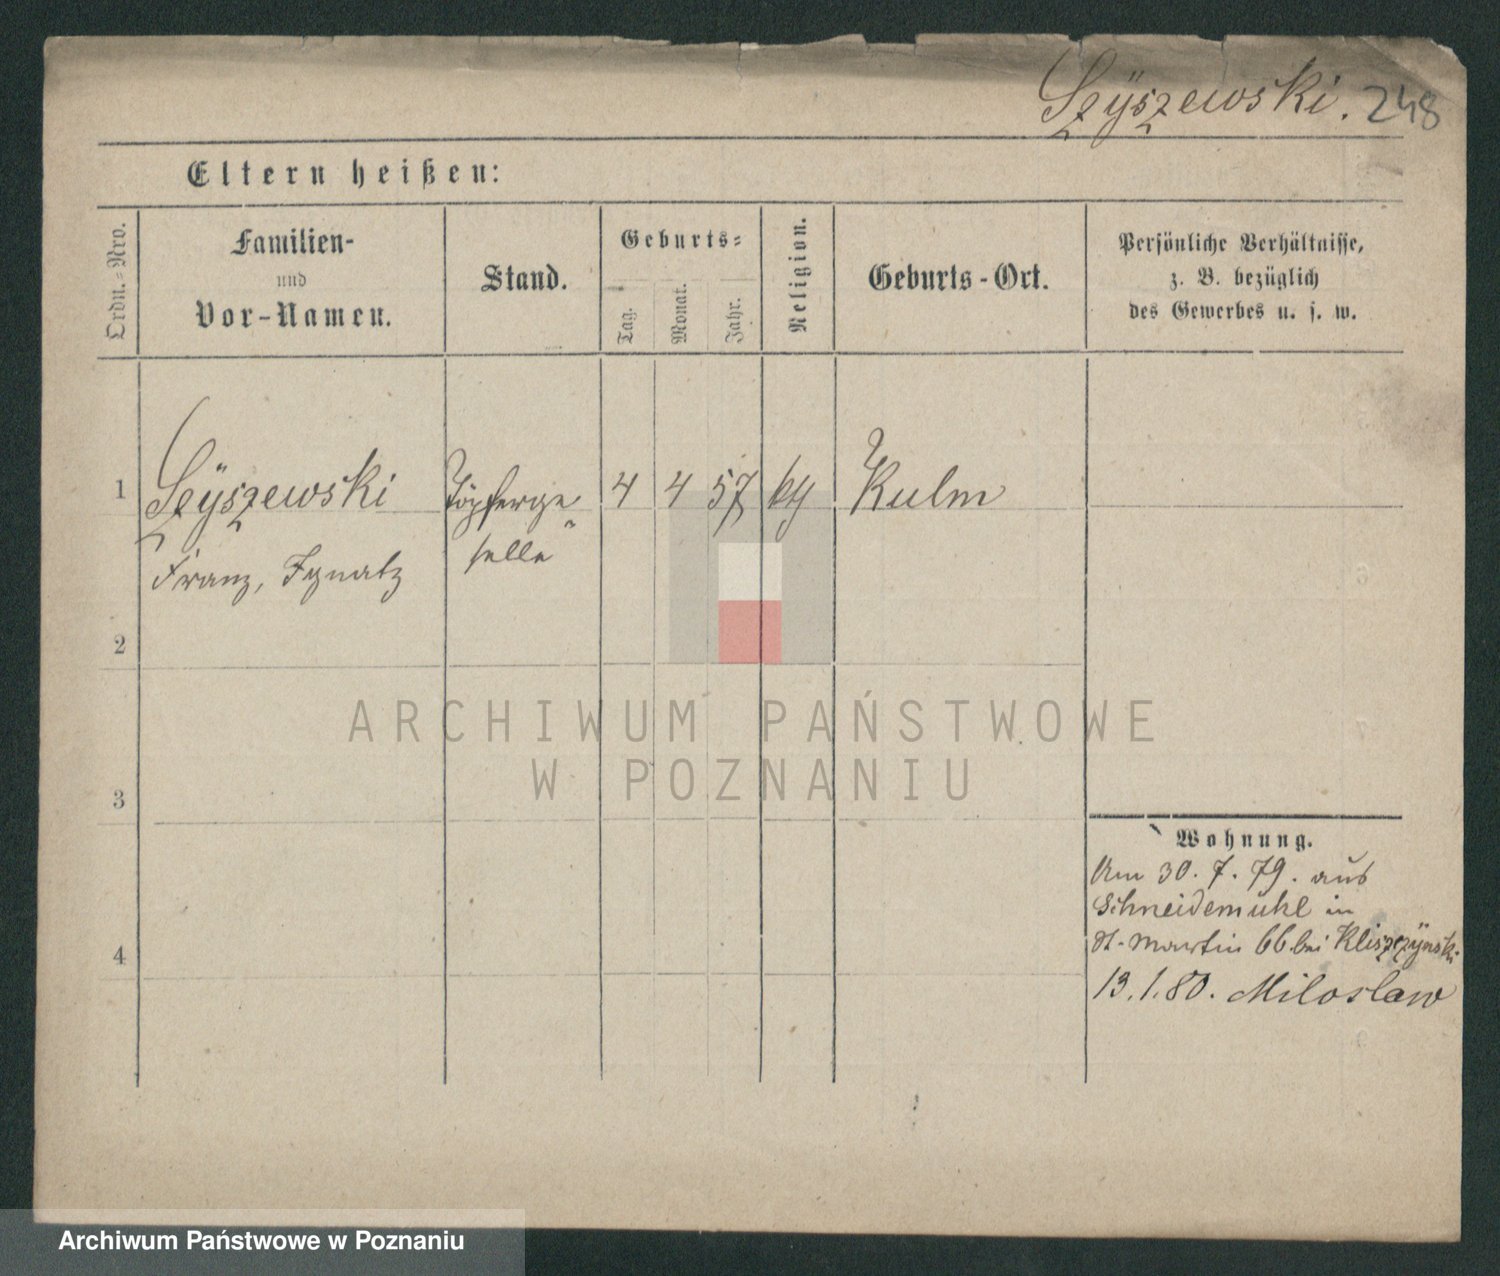 Szÿszewski. 248
Eltern heißen:
Ordn.-Nro.
Familien-
und
Vor-Namen.
Stand.
Geburts-
Tag.
Monat.
Jahr.
Religion.
Geburts-Ort.
Persönliche Verhältnisse,
z. B. bezüglich
des Gewerbes u. s. w.
1 Szÿszewski Töpferge 4 4 57 kth Kulm
Franz, Ignatz selle
2
3
4
Wohnung.
Am 30. 7. 79. aus
Schneidemühl in
St. Martin 66 bei Kliszczÿnski
13. 1. 80. Miloslaw
ARCHIWUM PAŃSTWOWE
W POZNANIU
Archiwum Państwowe w Poznaniu